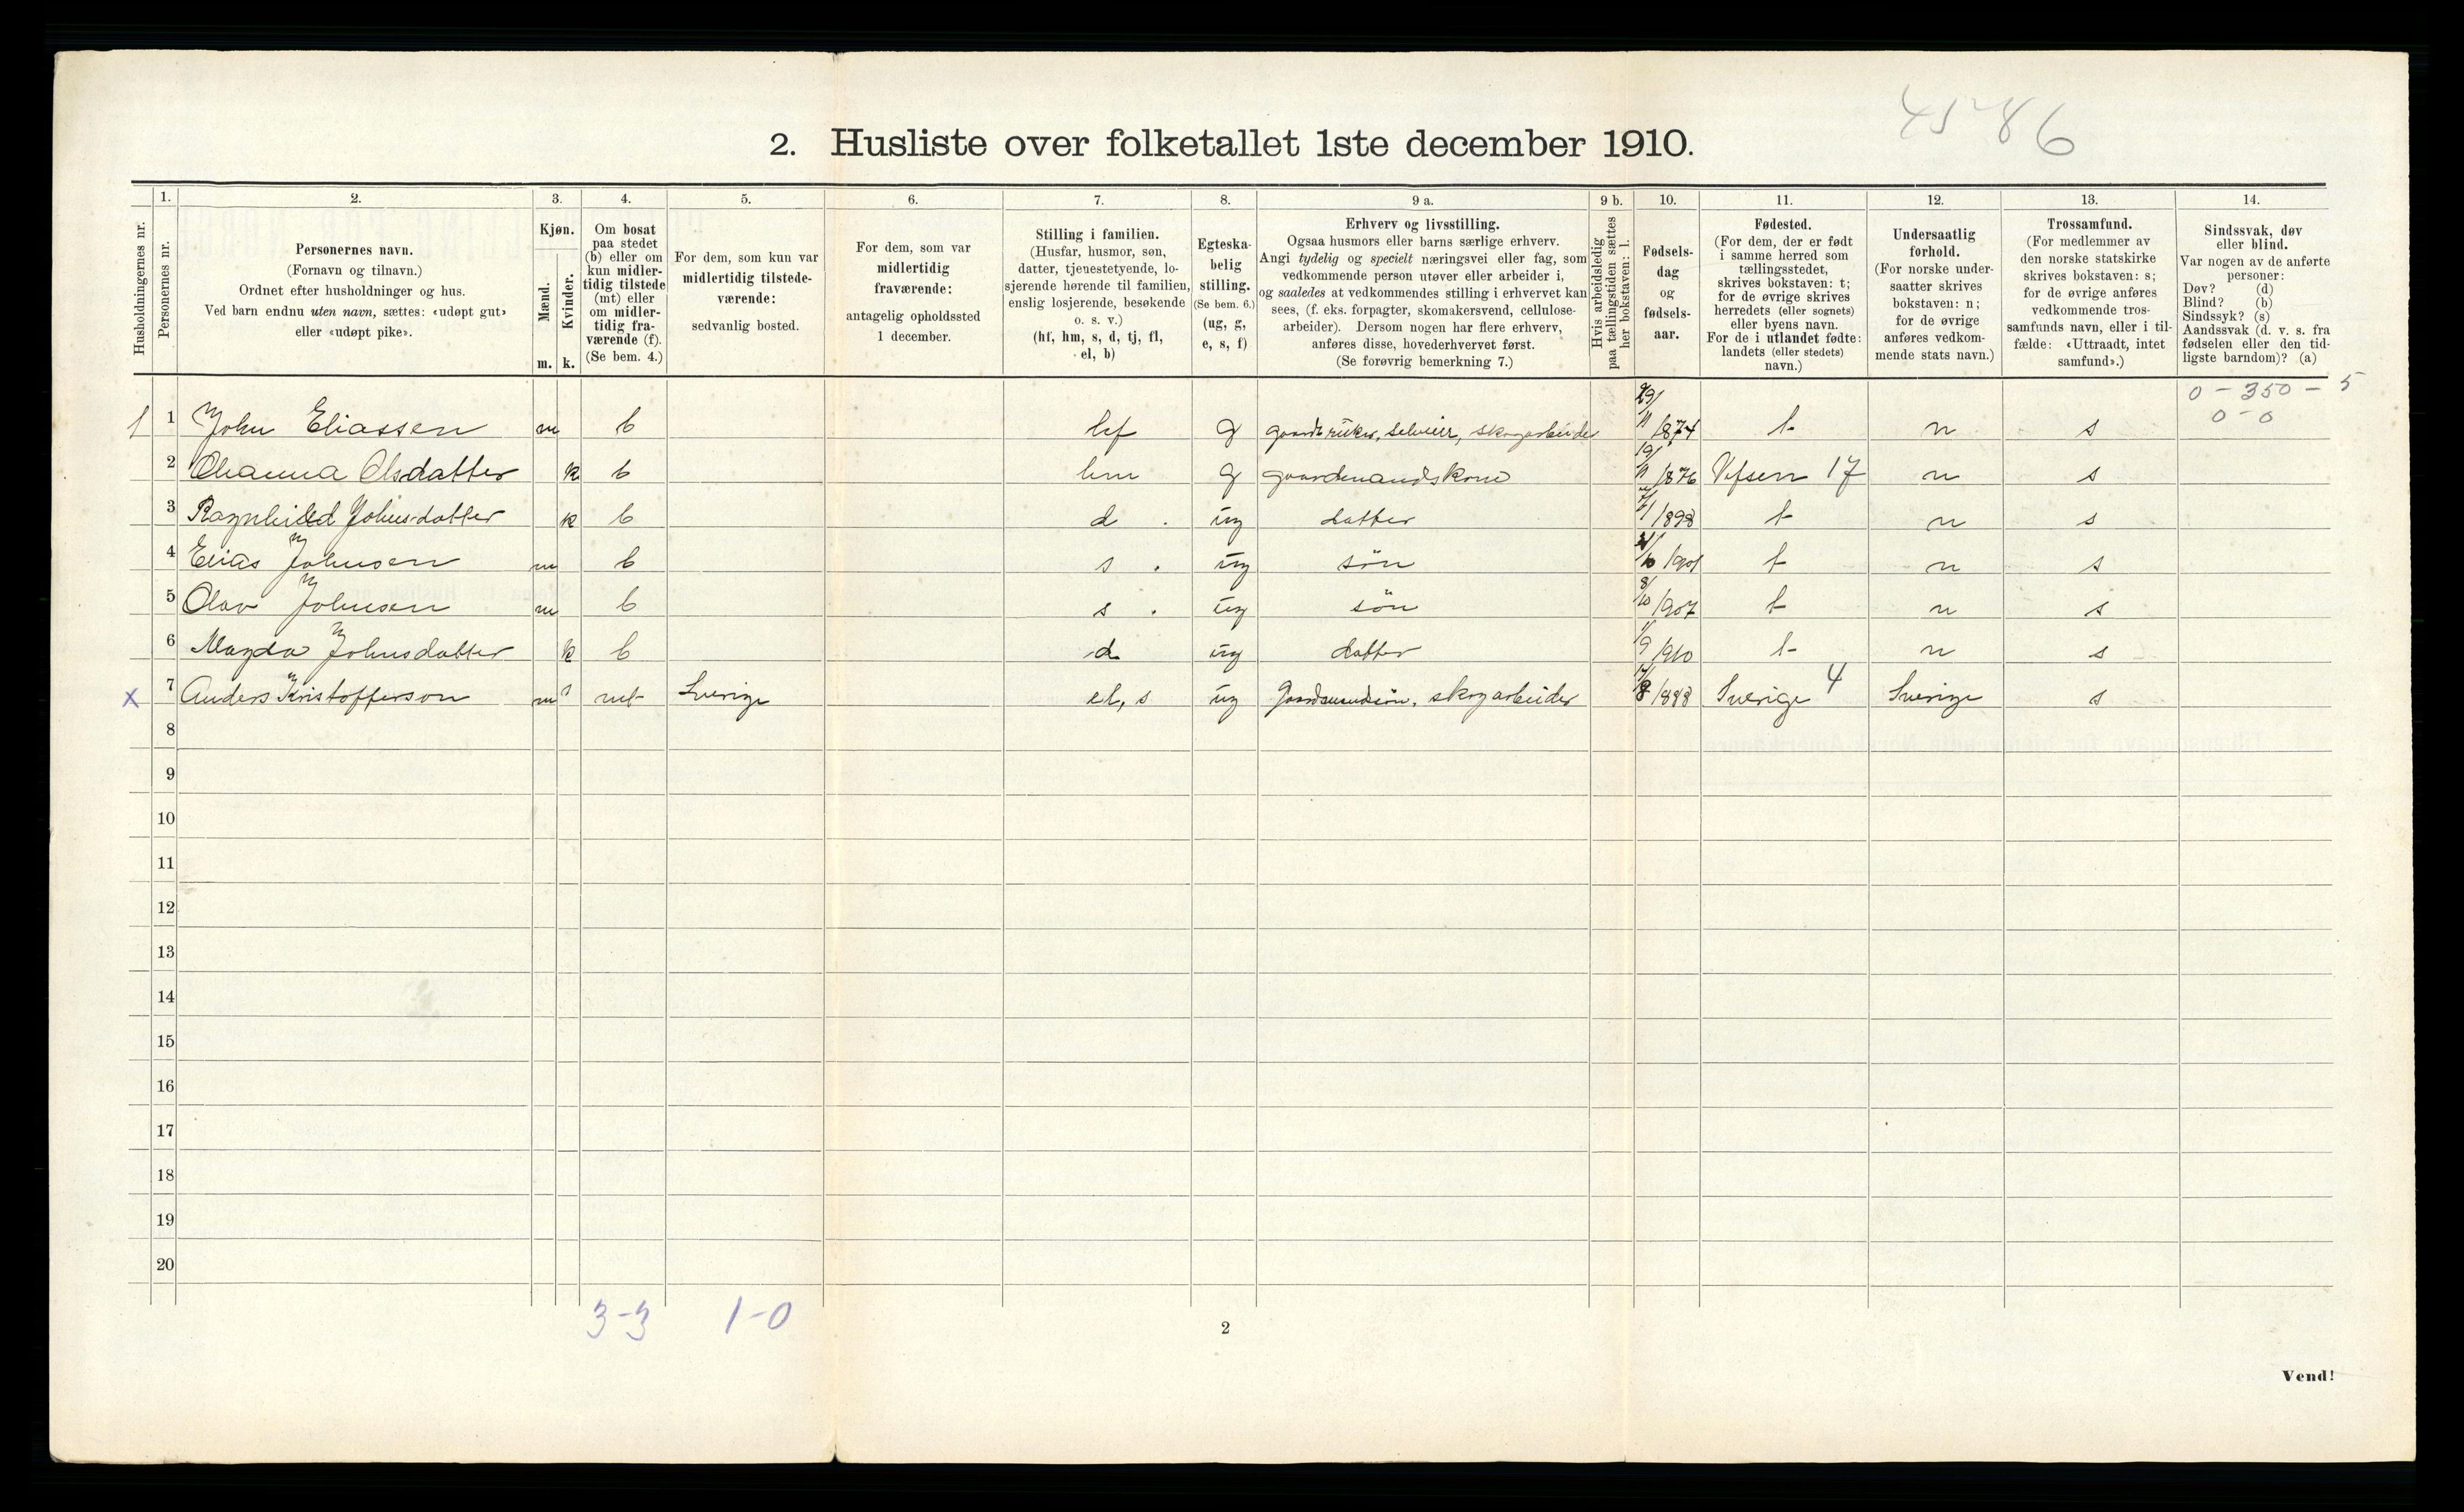 4586
2. Husliste over folketallet 1ste december 1910.
1. 2. 3. 4. 5. 6. 7. 8. 9 a. 9 b. 10. 11. 12. 13. 14.
Husholdningernes nr.
Personernes nr.
Personernes navn.
(Fornavn og tilnavn.)
Ordnet efter husholdninger og hus.
Ved barn endnu uten navn, sættes: «udøpt gut»
eller «udøpt pike».
Kjøn.
Mænd.
Kvinder.
m. k.
Om bosat
paa stedet
(b) eller om
kun midler-
tidig tilstede
(mt) eller
om midler-
tidig fra-
værende (f).
(Se bem. 4.)
For dem, som kun var
midlertidig tilstede-
værende:
sedvanlig bosted.
For dem, som var
midlertidig
fraværende:
antagelig opholdssted
1 december.
Stilling i familien.
(Husfar, husmor, søn,
datter, tjenestetyende, lo-
sjerende hørende til familien,
enslig losjerende, besøkende
o. s. v.)
(hf, hm, s, d, tj, fl,
el, b)
Egteska-
belig
stilling.
(Se bem. 6.)
(ug, g,
e, s, f)
Erhverv og livsstilling.
Ogsaa husmors eller barns særlige erhverv.
Angi tydelig og specielt næringsvei eller fag, som
vedkommende person utøver eller arbeider i,
og saaledes at vedkommendes stilling i erhvervet kan
sees, (f. eks. forpagter, skomakersvend, cellulose-
arbeider). Dersom nogen har flere erhverv,
anføres disse, hovederhvervet først.
(Se forøvrig bemerkning 7.)
Hvis arbeidsledig
paa tællingstiden sættes
her bokstaven: l.
Fødsels-
dag
og
fødsels-
aar.
Fødested.
(For dem, der er født
i samme herred som
tællingsstedet,
skrives bokstaven: t;
for de øvrige skrives
herredets (eller sognets)
eller byens navn.
For de i utlandet fødte:
landets (eller stedets)
navn.)
Undersaatlig
forhold.
(For norske under-
saatter skrives
bokstaven: n;
for de øvrige
anføres vedkom-
mende stats navn.)
Trossamfund.
(For medlemmer av
den norske statskirke
skrives bokstaven: s;
for de øvrige anføres
vedkommende tros-
samfunds navn, eller i til-
fælde: «Uttraadt, intet
samfund».)
Sindssvak, døv
eller blind.
Var nogen av de anførte
personer:
Døv? (d)
Blind? (b)
Sindssyk? (s)
Aandssvak (d. v. s. fra
fødselen eller den tid-
ligste barndom)? (a)
0 - 350 - 5
0 - 0
1 1 John Eliassen m b hf g gaardbruker, selveier, skogarbeider 29/11 1874 t n s
2 Ohanna Olsdatter k b hm g gaardmandskone 19/11 1876 Vefsen 17 n s
3 Ragnhild Johnsdatter k b d . ug datter 1898 t n s
4 Elias Johnsen m b s . ug søn 1901 t n s
5 Olav Johnsen m b s . ug søn 8/10 1907 t n s
6 Magda Johnsdatter k b d ug datter 1/9 1910 t n s
x 7 Anders Kristofferson m mt Sverige el, s ug Gaardmandssøn, skogarbeider 17/8 1888 Sverige 4 Sverige s
8
9
10
11
12
13
14
15
16
17
18
19
20
3-3 1-0
2
Vend!